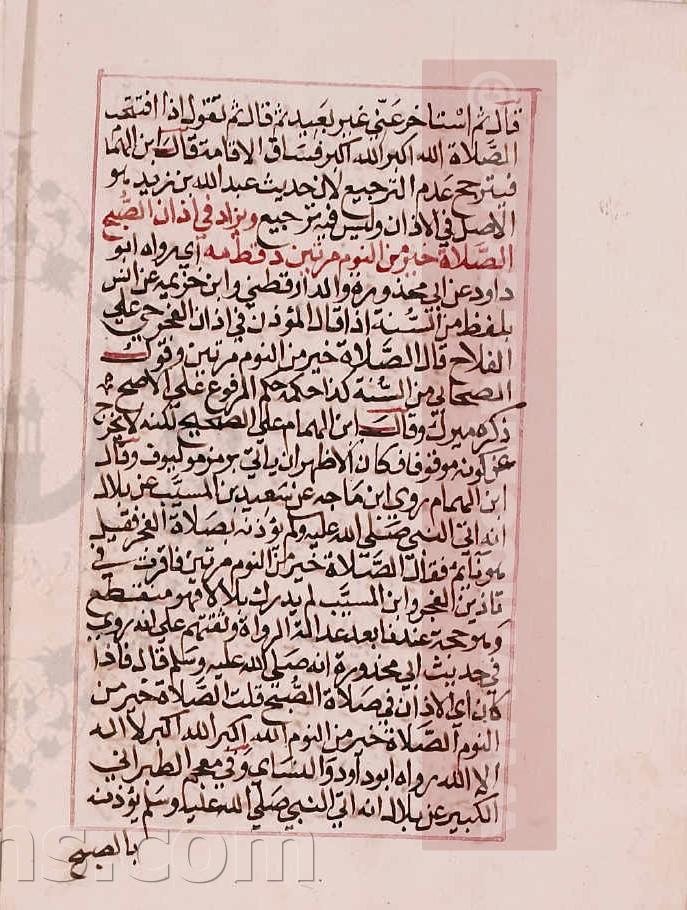 قال ثم استاخر عني غير بعيد ثم قال ثم تقول اذا افتتحت
الصلاة الله اكبر الله اكبر فساق الاقامة قال ابن الهمام
فيترجح عدم الترجيع لان حديث عبد الله بن زيد هو
الاصل في الاذان وليس فيه ترجيع ويزاد في اذان الصبح
الصلاة خير من النوم مرتين د قط مه اي رواه ابو
داود عن ابي محذورة والدارقطني وابن خزيمه عن انس
بلفظ من السنة اذا قال المؤذن في اذان الفجر حي على
الفلاح قال الصلاة خير من النوم مرتين وقول
الصحابي من السنة كذا حكمه حكم المرفوع على الاصح
ذكره ميرك وقال ابن الهمام على الصحيح لكنه لا يخرج
عن كونه موقوفا فكان الاظهر ان ياتي برمز مو لموقوف وقال
ابن الهمام روى ابن ماجه عن سعيد بن المسيب عن بلال
انه اتى النبي صلى الله عليه وسلم يؤذنه بصلاة الفجر فقيل
هو نائم فقال الصلاة خير من النوم مرتين فاقرت في
تاذين الفجر وابن المسيب لم يدرك بلالا فهو منقطع
وهو حجة عندنا بعد عدالة الرواة وثقتهم على انه روي
في حديث ابي محذورة انه صلى الله عليه وسلم قال فاذا
كان اي الاذان في صلاة الصبح قلت الصلاة خير من
النوم الصلاة خير من النوم الله اكبر الله اكبر لا اله
الا الله رواه ابو داود والنساي وفي معجم الطبراني
الكبير عن بلال انه اتى النبي صلى الله عليه وسلم يؤذنه
بالصبح
ns.com